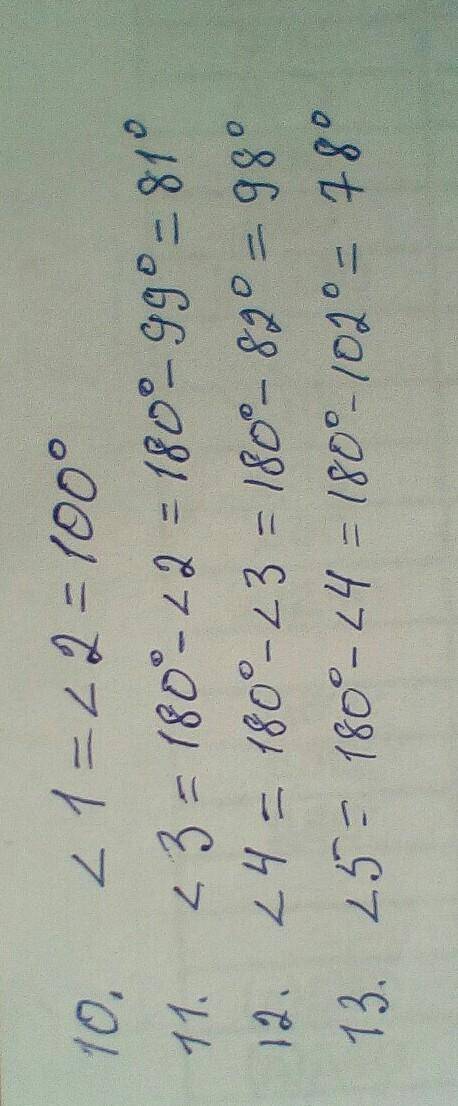 10. ∠1 = ∠2 = 100°
11. ∠3 = 180° - ∠2 = 180° - 99° = 81°
12. ∠4 = 180° - ∠3 = 180° - 82° = 98°
13. ∠5 = 180° - ∠4 = 180° - 102° = 78°